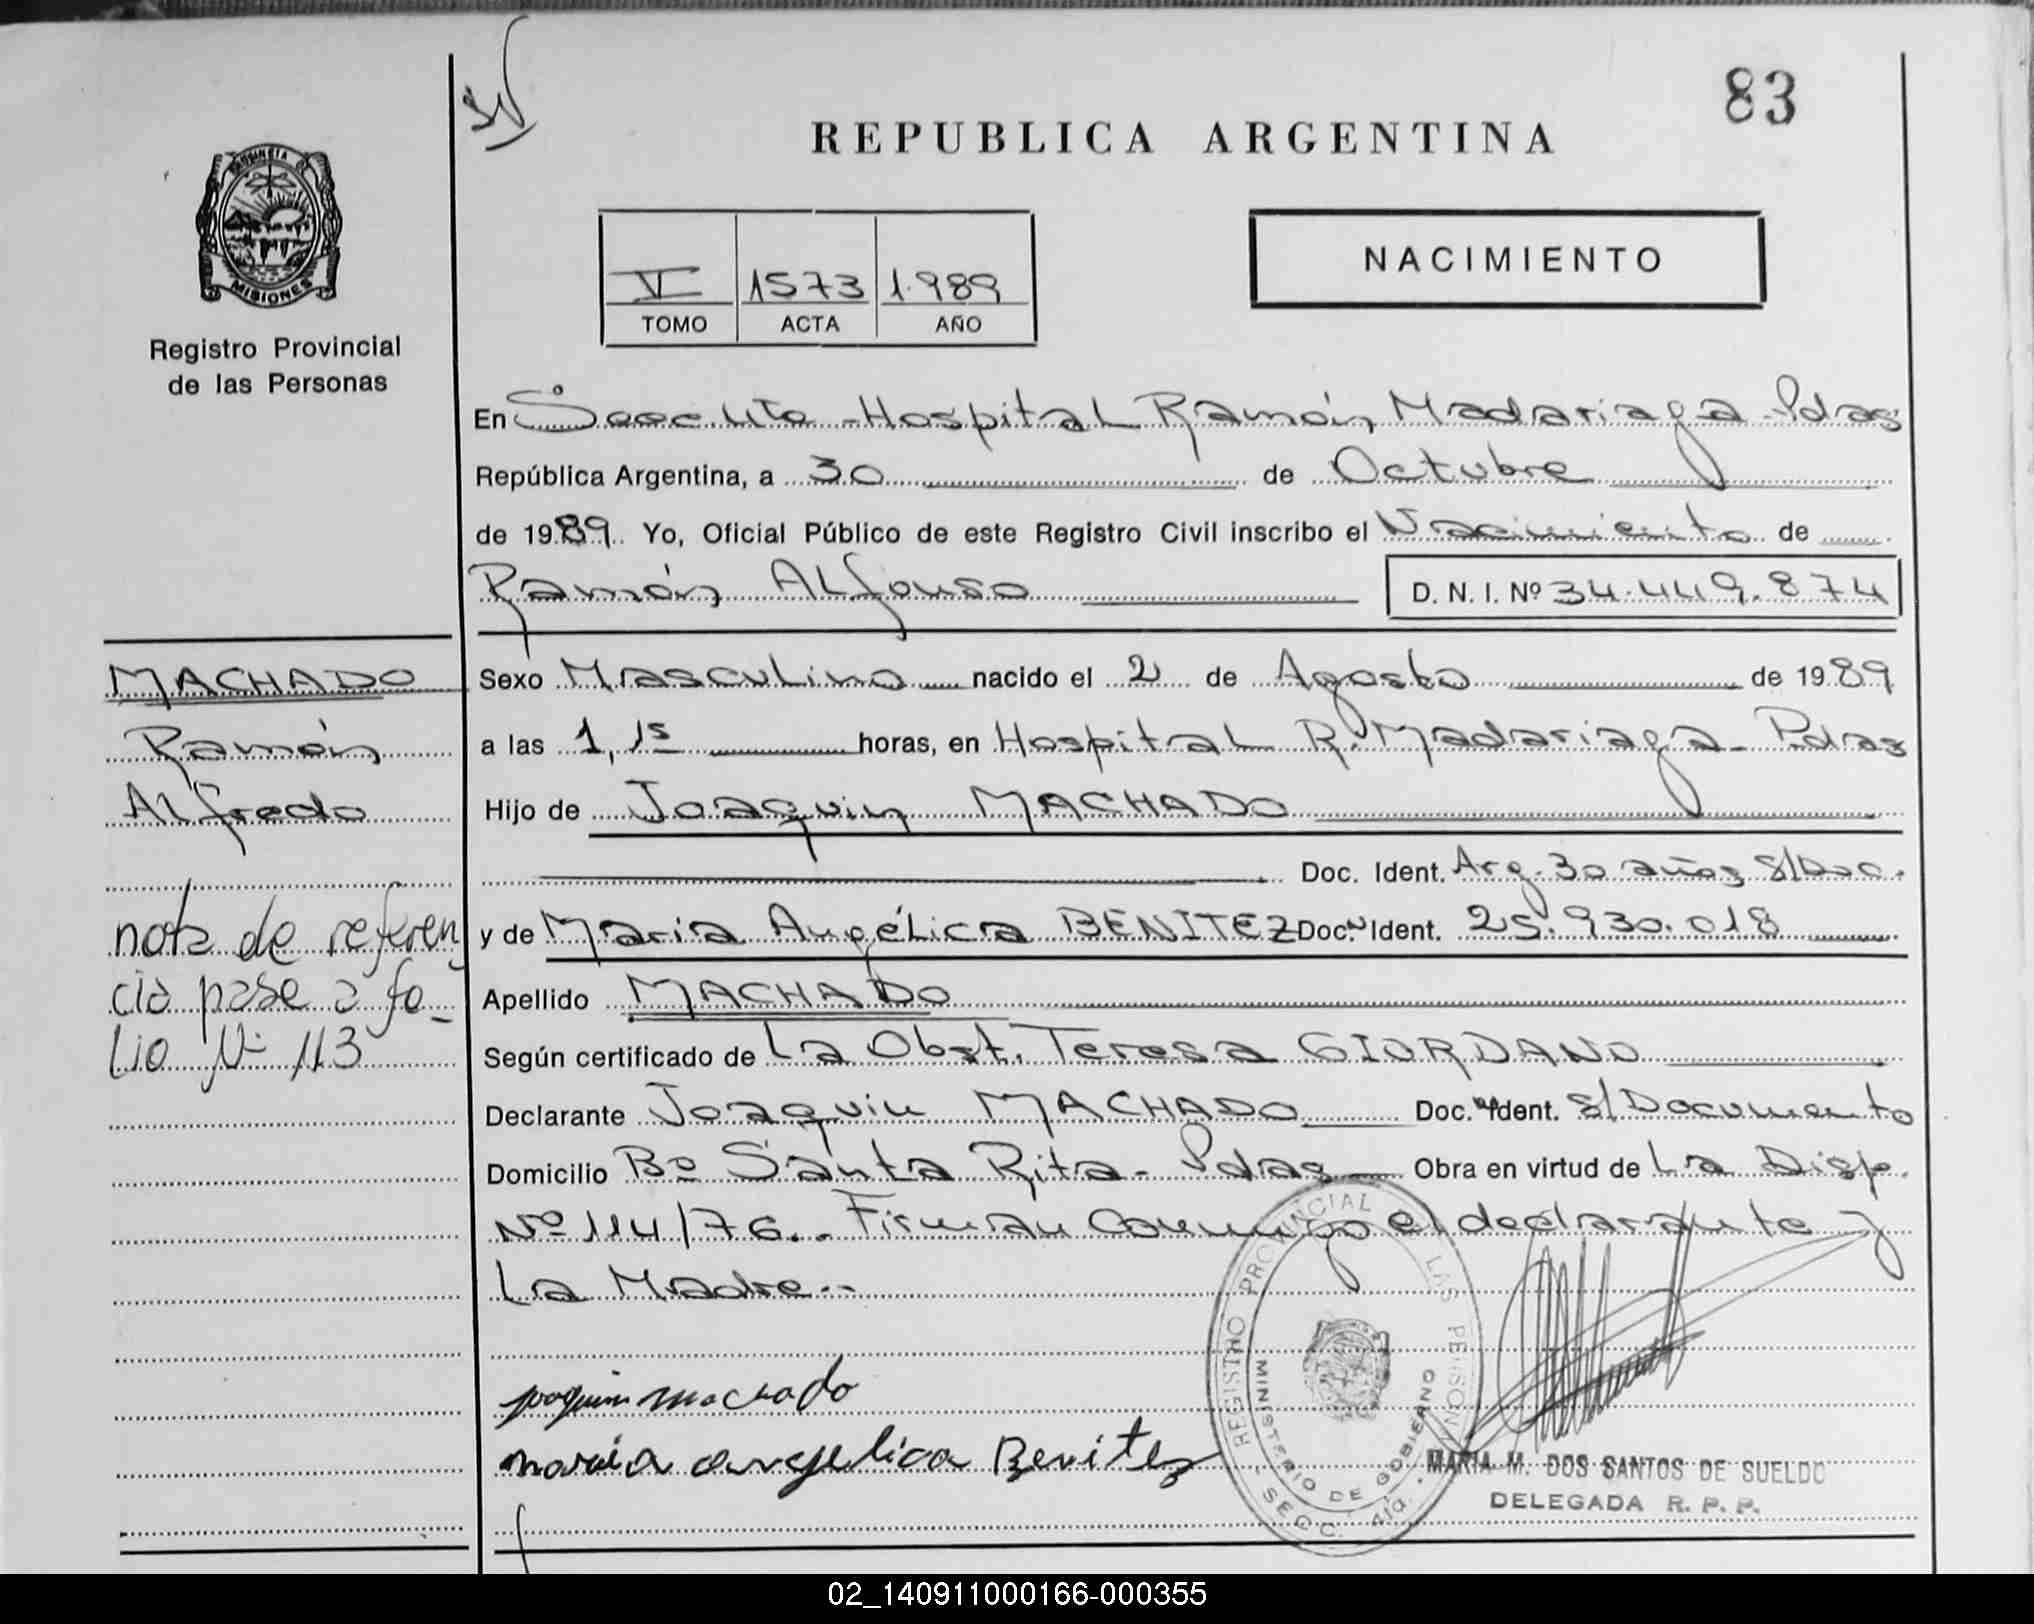 83
REPUBLICA ARGENTINA
PROVINCIA DE
MISIONES
Registro Provincial
de las Personas
V 1573 1.989
TOMO ACTA AÑO
NACIMIENTO
En Secc. 4ta - Hospital Ramón Madariaga - Pdas
República Argentina, a 30 de Octubre
de 1989 Yo, Oficial Público de este Registro Civil inscribo el Nacimiento de
Ramón Alfonso D. N. I. Nº 34.449.874
MACHADO
Ramón
Alfredo
nota de referen
cia pase a fo_
lio Nº 113
Sexo Masculino nacido el 2 de Agosto de 1989
a las 1,15 horas, en Hospital R. Madariaga - Pdas
Hijo de Joaquin MACHADO
Doc. Ident. Arg. 30 años S/Doc.
y de Maria Angélica BENITEZ Doc. Ident. 25.930.018
Apellido MACHADO
Según certificado de La Obst. Teresa GIORDANO
Declarante Joaquin MACHADO Doc. Ident. S/Documento
Domicilio Bº Santa Rita - Pdas Obra en virtud de La Disp.
Nº 114/76.. Firman conmigo el declarante y
La Madre..
joaquin machado
maria angelica Benitez
REGISTRO PROVINCIAL LAS PERSONAS
MINISTERIO DE GOBIERNO
- SECC. 4ta. -
MARIA M. DOS SANTOS DE SUELDO
DELEGADA R. P. P.
02_140911000166-000355